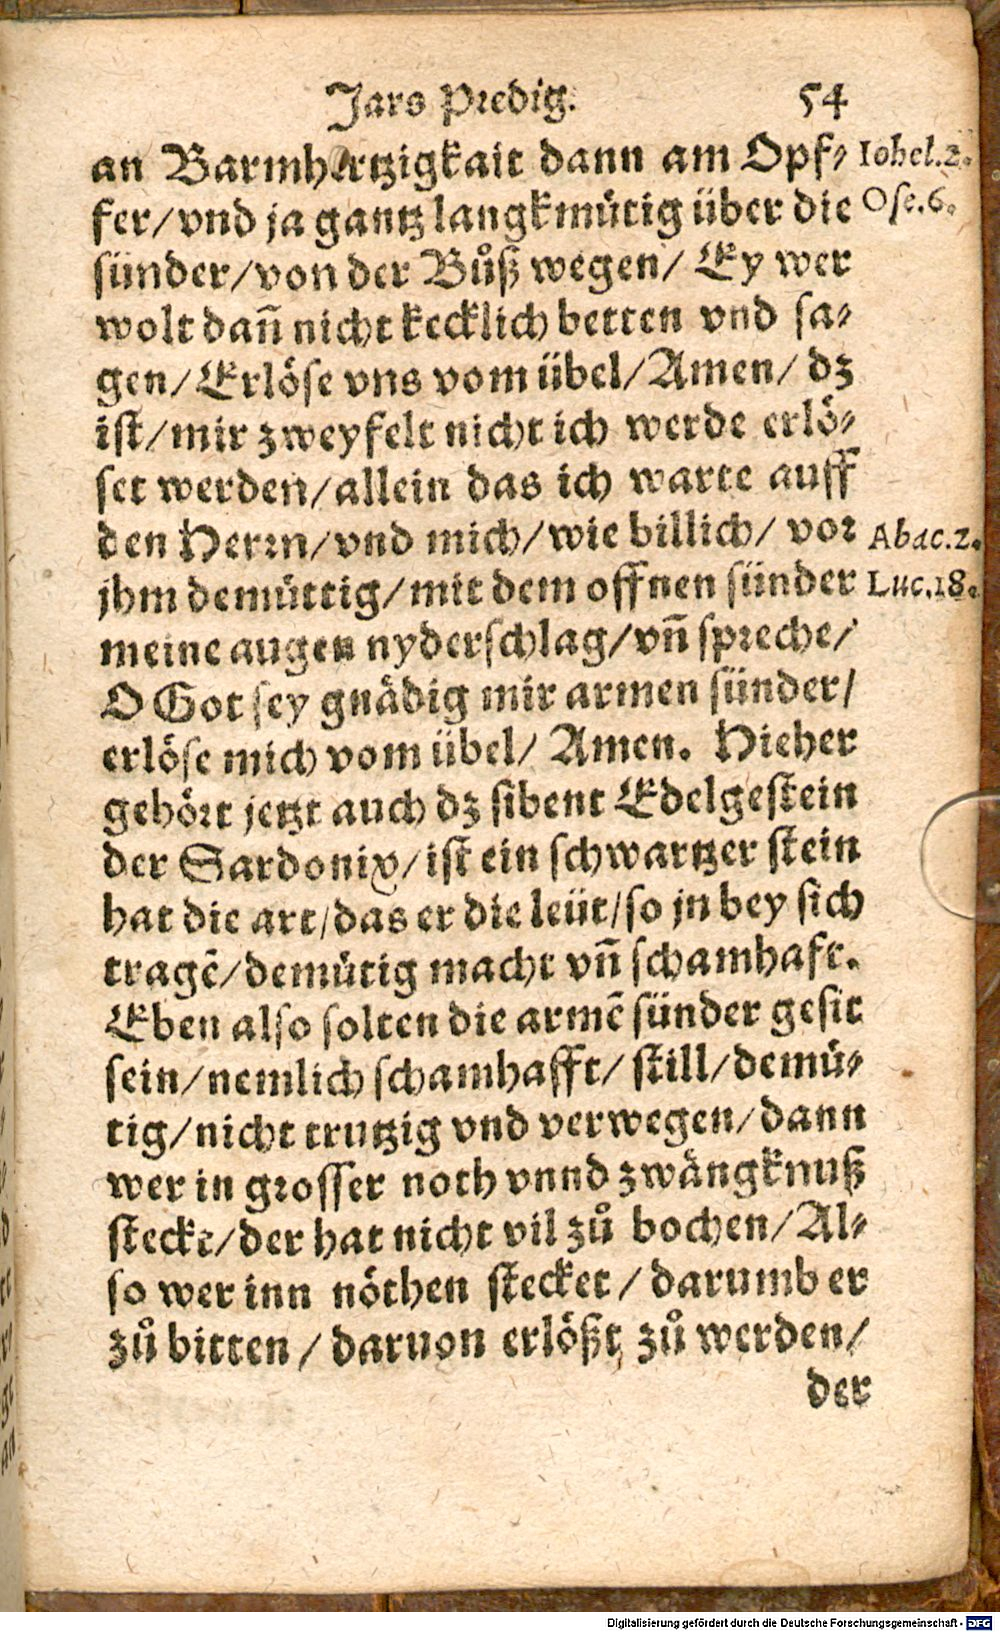 Jars Predig. 54
an Barmhertzigkait dann am Opf⸗ Iohel.2.
fer/vnd ja gantz langkmütig über die Ose.6.
sünder/von der Bůß wegen/ Ey wer
wolt dañ nicht kecklich betten vnd sa⸗
gen/Erlöse vns vom übel/Amen/ dz
ist/mir zweyfelt nicht ich werde erlö⸗
set werden/allein das ich warte auff
den Herrn/vnd mich/wie billich/ vor Abac.2.
jhm demüttig/mit dem offnen sünder Luc.18.
meine augen nyderschlag/vñ spreche/
O Got sey gnädig mir armen sünder/
erlöse mich vom übel/ Amen. Hieher
gehört jetzt auch dz sibent Edelgestein
der Sardonix/ist ein schwartzer stein
hat die art/das er die leüt/so jn bey sich
tragē/demütig macht vñ schamhaft.
Eben also solten die armē sünder gesit
sein/nemlich schamhafft/ still/demü⸗
tig/nicht trutzig vnd verwegen/dann
wer in grosser noth vnnd zwängknuß
steckt/der hat nicht vil zů bochen/Al⸗
so wer inn nöthen stecket/darumb er
zů bitten/daruon erlößt zů werden/
der
Digitalisierung gefördert durch die Deutsche Forschungsgemeinschaft - DFG